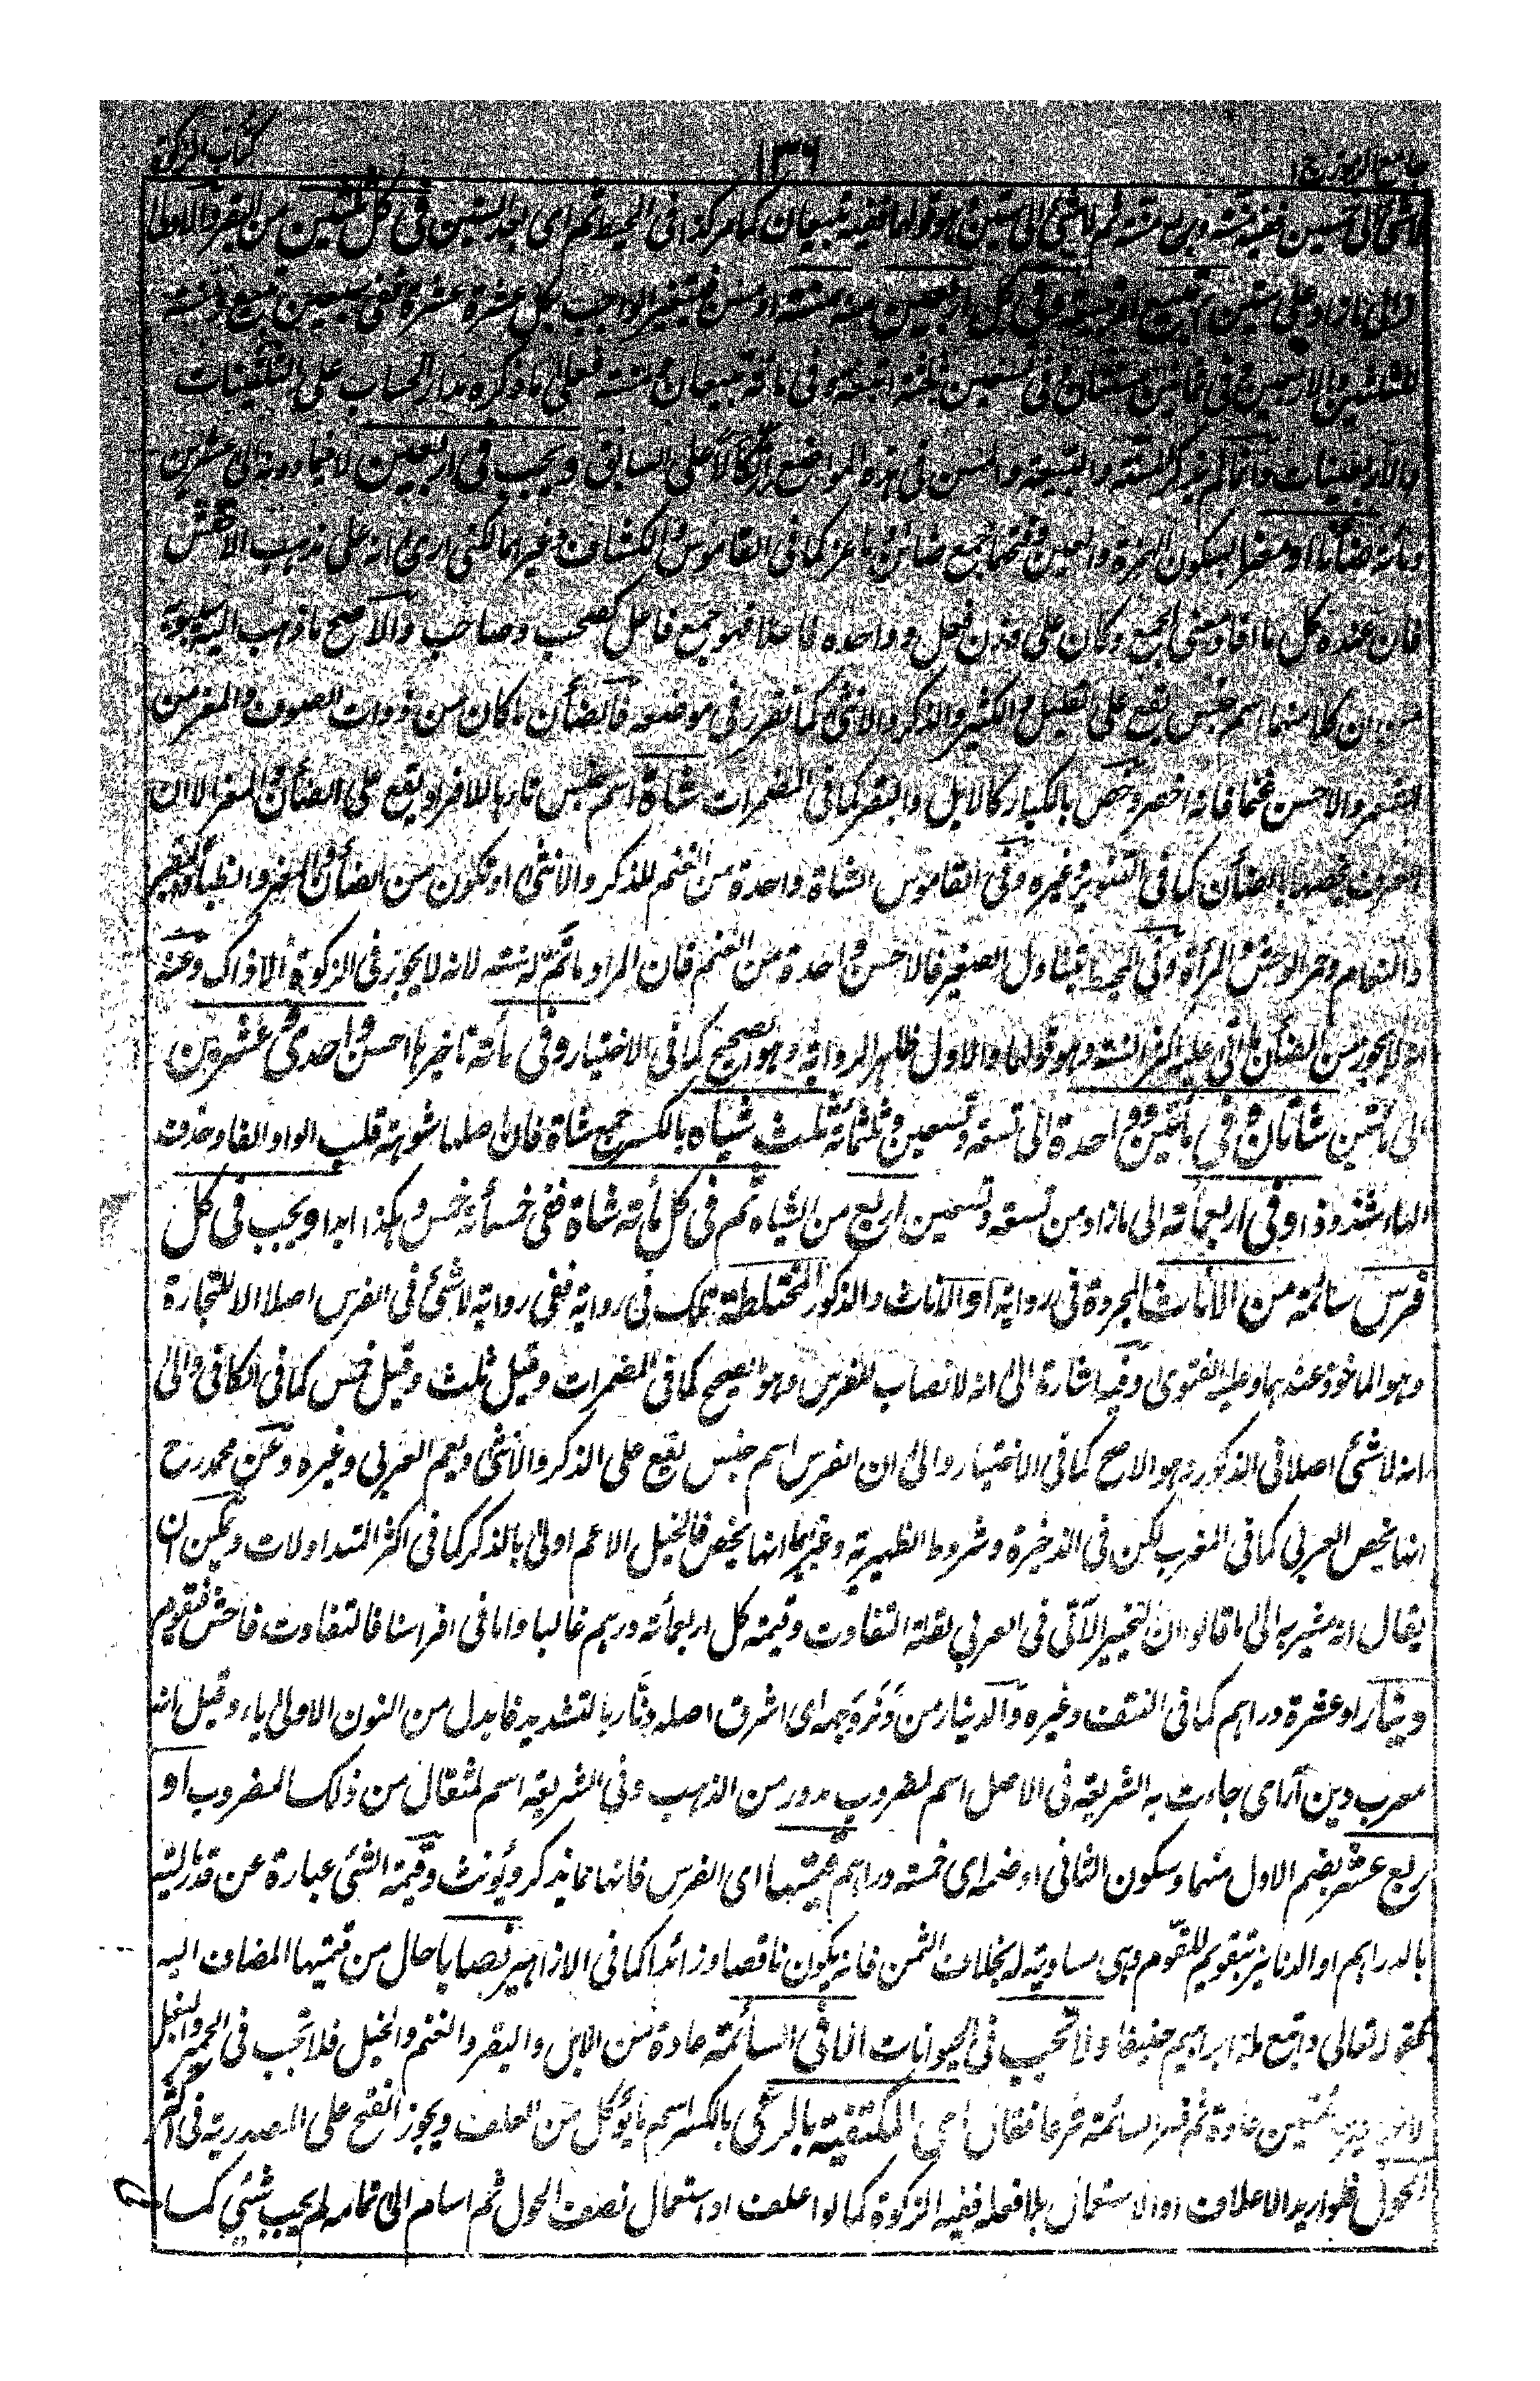 جامع الرموز ج ١ ١٣٦ كتاب الزكوة
لا شئ الى خمسين ففيه مسنة وربع مسنة ثم لا شئ الى ستين وهو قولهما ففيه تبيعان كما مر كذا فى المحيط ثم اى بعد الستين فى كل ثلثين من البقر
على ستين تبيع او تبيعة وفى كل اربعين منه مسنة او مسن فيتغير الواجب بكل عشرة عشرة ففى سبعين تبيع ومسنة
للثلثين والاربعين وفى ثمانين مسنتان وفى تسعين ثلثة اتبعة وفى مائة تبيعان ومسنة فعلى ما ذكره مدار الحساب على الثلثينات
والاربعينات وانما لم يذكر المسنة والتبيعة والمسن فى هذه المواضع اتكالا على السابق ويجب فى اربعين لا فيما دونه الى عشرين
ومائة ضأنا او معزا بسكون الهمزة والعين وفتحهما جمع ضائن وماعز كما فى القاموس والكشاف وغيرهما لكنى ارى انه على مذهب الاخفش
فان عنده كل ما افاد معنى الجمع وكان على وزن فعل وواحده فاعلا فهو جمع فاعل كصحب وصاحب والاصح ما ذهب اليه سيبويه
من ان كلا منهما اسم جنس يقع على القليل والكثير والذكر والانثى كما تقرر فى موضعه فالضأن ما كان من ذوات الصوف والمعز من
الشعر والاحسن غنما فانه اخصر وخص بالكبار كالابل والبقر كما فى المضمرات شاة اسم جنس تاؤها للافراد يقع على الضأن والمعز الا ان
العرف يخصها بالضأن كما فى التنوير وغيره وفى القاموس الشاة واحدة من الغنم للذكر والانثى او تكون من الضأن والمعز والظباء والبقر
والنعام وحمر الوحش والمرأة وفى المحيط يتناول الصغير فالاحسن واحدة من الغنم فان المراد ما تم له سنة لانه لا يجوز فى الزكوة الا ذاك وعنه
انه لا يجوز من الضأن ما اتى عليه اكثر السنة وهو قولهما والاول ظاهر الرواية وهو الصحيح كما فى الاختيار وفى مائة تاخيرها احسن واحدى وعشرين
الى مائتين شاتان وفى مائتين وواحدة الى تسعة وتسعين وثلثمائة ثلث شياه بالكسر جمع شاة فان اصلها شوهة قلب الواو الفا وحذفت
الهاء شذوذا وفى اربعمائة الى ما زاد من تسعة وتسعين اربع من الشياه ثم فى كل مائة شاة ففى خمسمائة خمس وهكذا ابدا ويجب فى كل
فرس سائمة من الاناث المجردة فى رواية او الاناث والذكور المختلطة بتلك فى رواية ففى رواية لا شئ فى الفرس اصلا الا للتجارة
وهو الماخوذ عندهما وعليه الفتوى وفيه اشارة الى انه لا نصاب للفرس وهو الصحيح كما فى المضمرات وقيل ثلث وقيل خمس كما فى الكافى والى
انه لا شئ اصلا فى الذكور وهو الاصح كما فى الاختيار والى ان الفرس اسم جنس يقع على الذكر والانثى ويعم العربى وغيره وعن محمد رح
انها يخص العربى كما فى المغرب لكن فى الذخيرة وشروط الظهيرية وغيرهما انها يخص فالخيل الاعم اولى بالذكر كما فى اكثر المتداولات ويمكن ان
يقال انه مشير به الى ما قالوا ان التخيير الآتى فى العربى لقلة التفاوت وقيمة كل اربعمائة درهم غالبا واما فى افراسنا فالتفاوت فاحش فتقوم
دينار او عشرة دراهم كما فى النتف وغيره والدينار من دنر وجهه اى اشرق اصله دنار بالتشديد فابدل من النون الاولى ياء وقيل انه
معرب دين آر اى جاءت به الشريعة فى الاصل اسم لمضروب مدور من الذهب وفى الشريعة اسم لمثقال من ذلك المضروب او
ربع عشر بضم الاول منهما وسكون الثانى او ضمه اى خمسة دراهم قيمتها اى الفرس فانها مما يذكر ويؤنث وقيمة الشئ عبارة عن قدر ماليته
بالدراهم او الدنانير بتقويم المقوم وهى مساوية له بخلاف الثمن فانه يكون ناقصا وزائدا كما فى الازاهير نصابا حال من قيمتها المضاف اليه
كقوله تعالى واتبع ملة ابراهيم حنيفا ولا تجب فى الحيوانات الا فى السائمة عادة من الابل والبقر والغنم والخيل فلا تجب فى الحمير والبغل
عادة ثم فسر السائمة شرعا فقال اى المكتفية بالرعى بالكسر اسم ما يؤكل من العلف ويجوز الفتح على المصدرية فى اكثر
الحول فلو اريد الاعلاف او الاستعمال بلا فعله ففيه الزكوة كما لو اعلف او استعمال نصف الحول ثم اسام الى تمامه لم يجب شئ كما